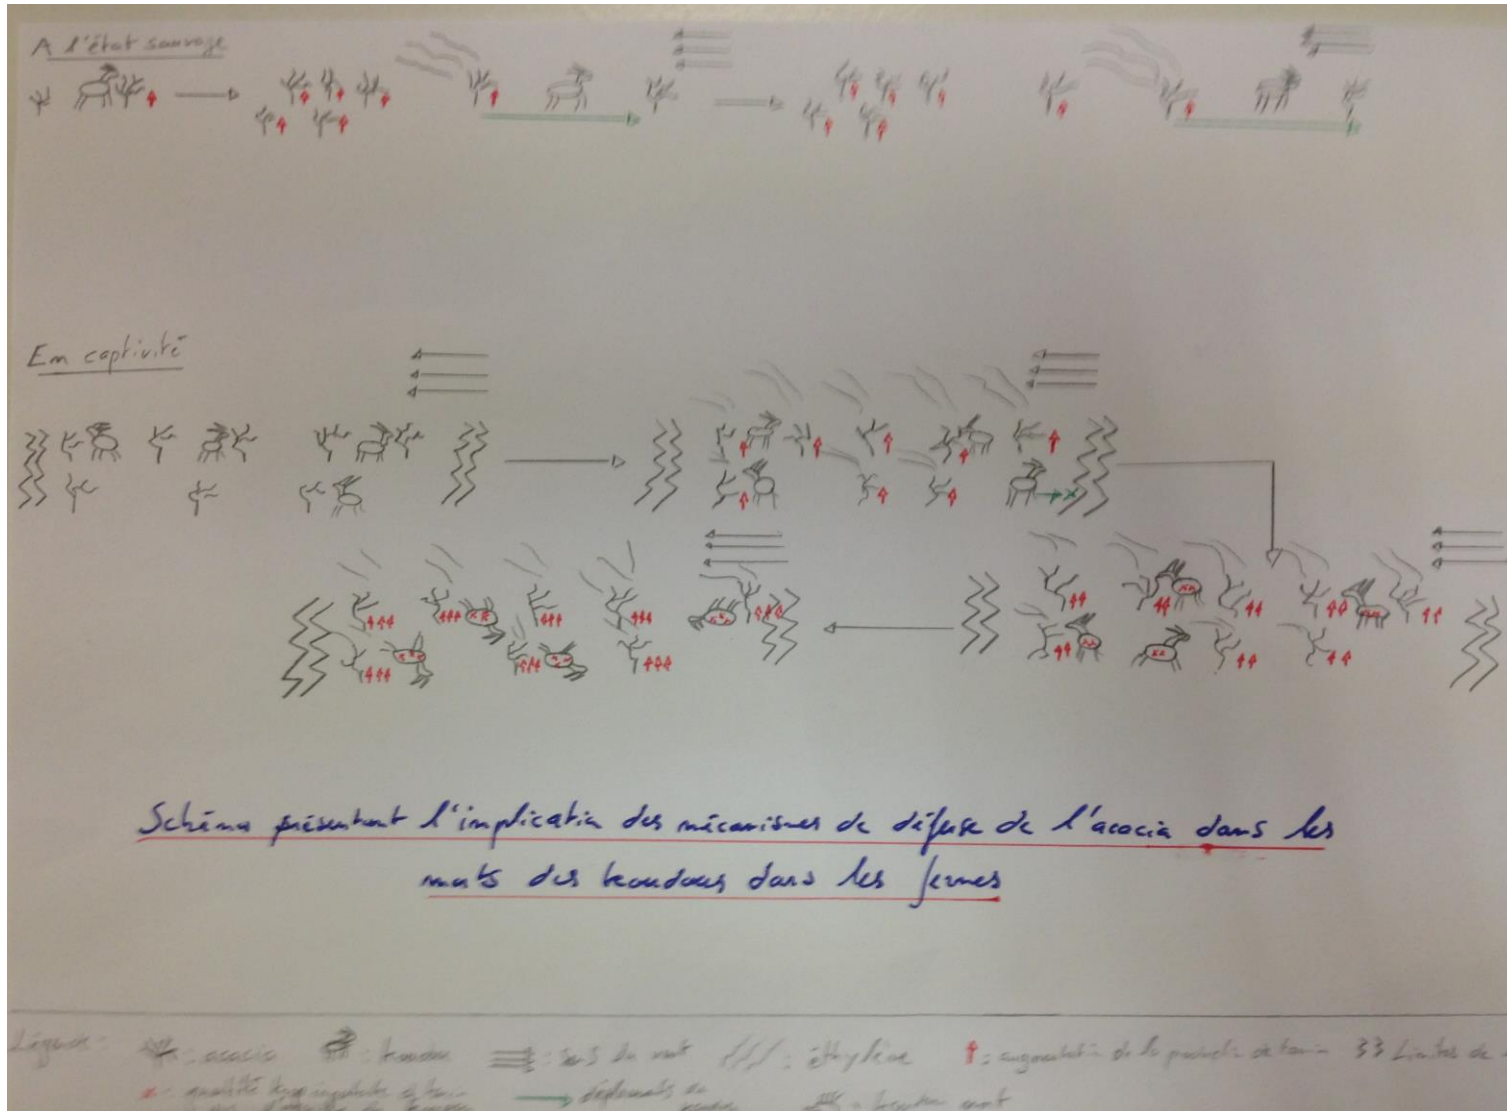 A l'état sauvage
En captivité
Schéma présentant l'implication des mécanismes de défense de l'acacia dans les
morts des koudous dans les fermes
Légende : : acacia : koudou : sens du vent : éthylène : augmentation de la production de tanin Limites de
: quantité trop importante de tanin déplacements du : koudou mort